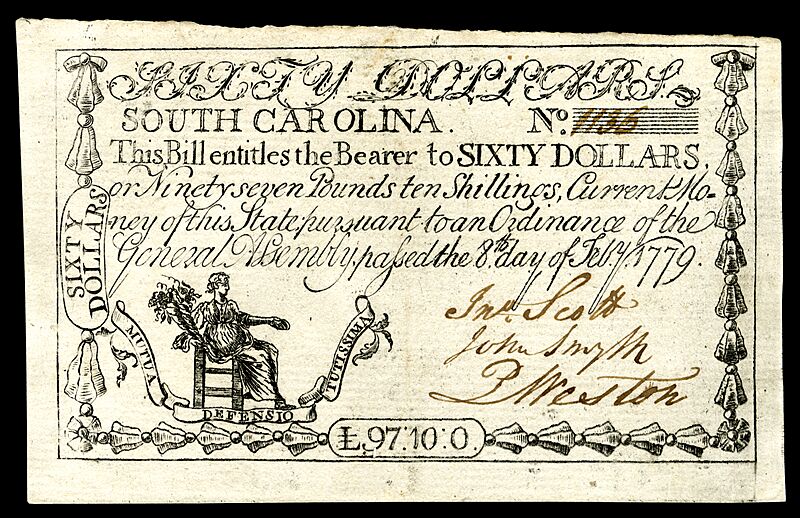 SIXTY DOLLARS.
SOUTH CAROLINA. No. 1136
This Bill entitles the Bearer to SIXTY DOLLARS,
or Ninety seven Pounds ten Shillings, Current Mo-
ney of this State, pursuant to an Ordinance of the
General Assembly, passed the 8th. day of Feby. 1779.
SIXTY
DOLLARS
Jno. Scott
John Smyth
P Weston
MUTUA DEFENSIO TUTISSIMA
£97:10:0.